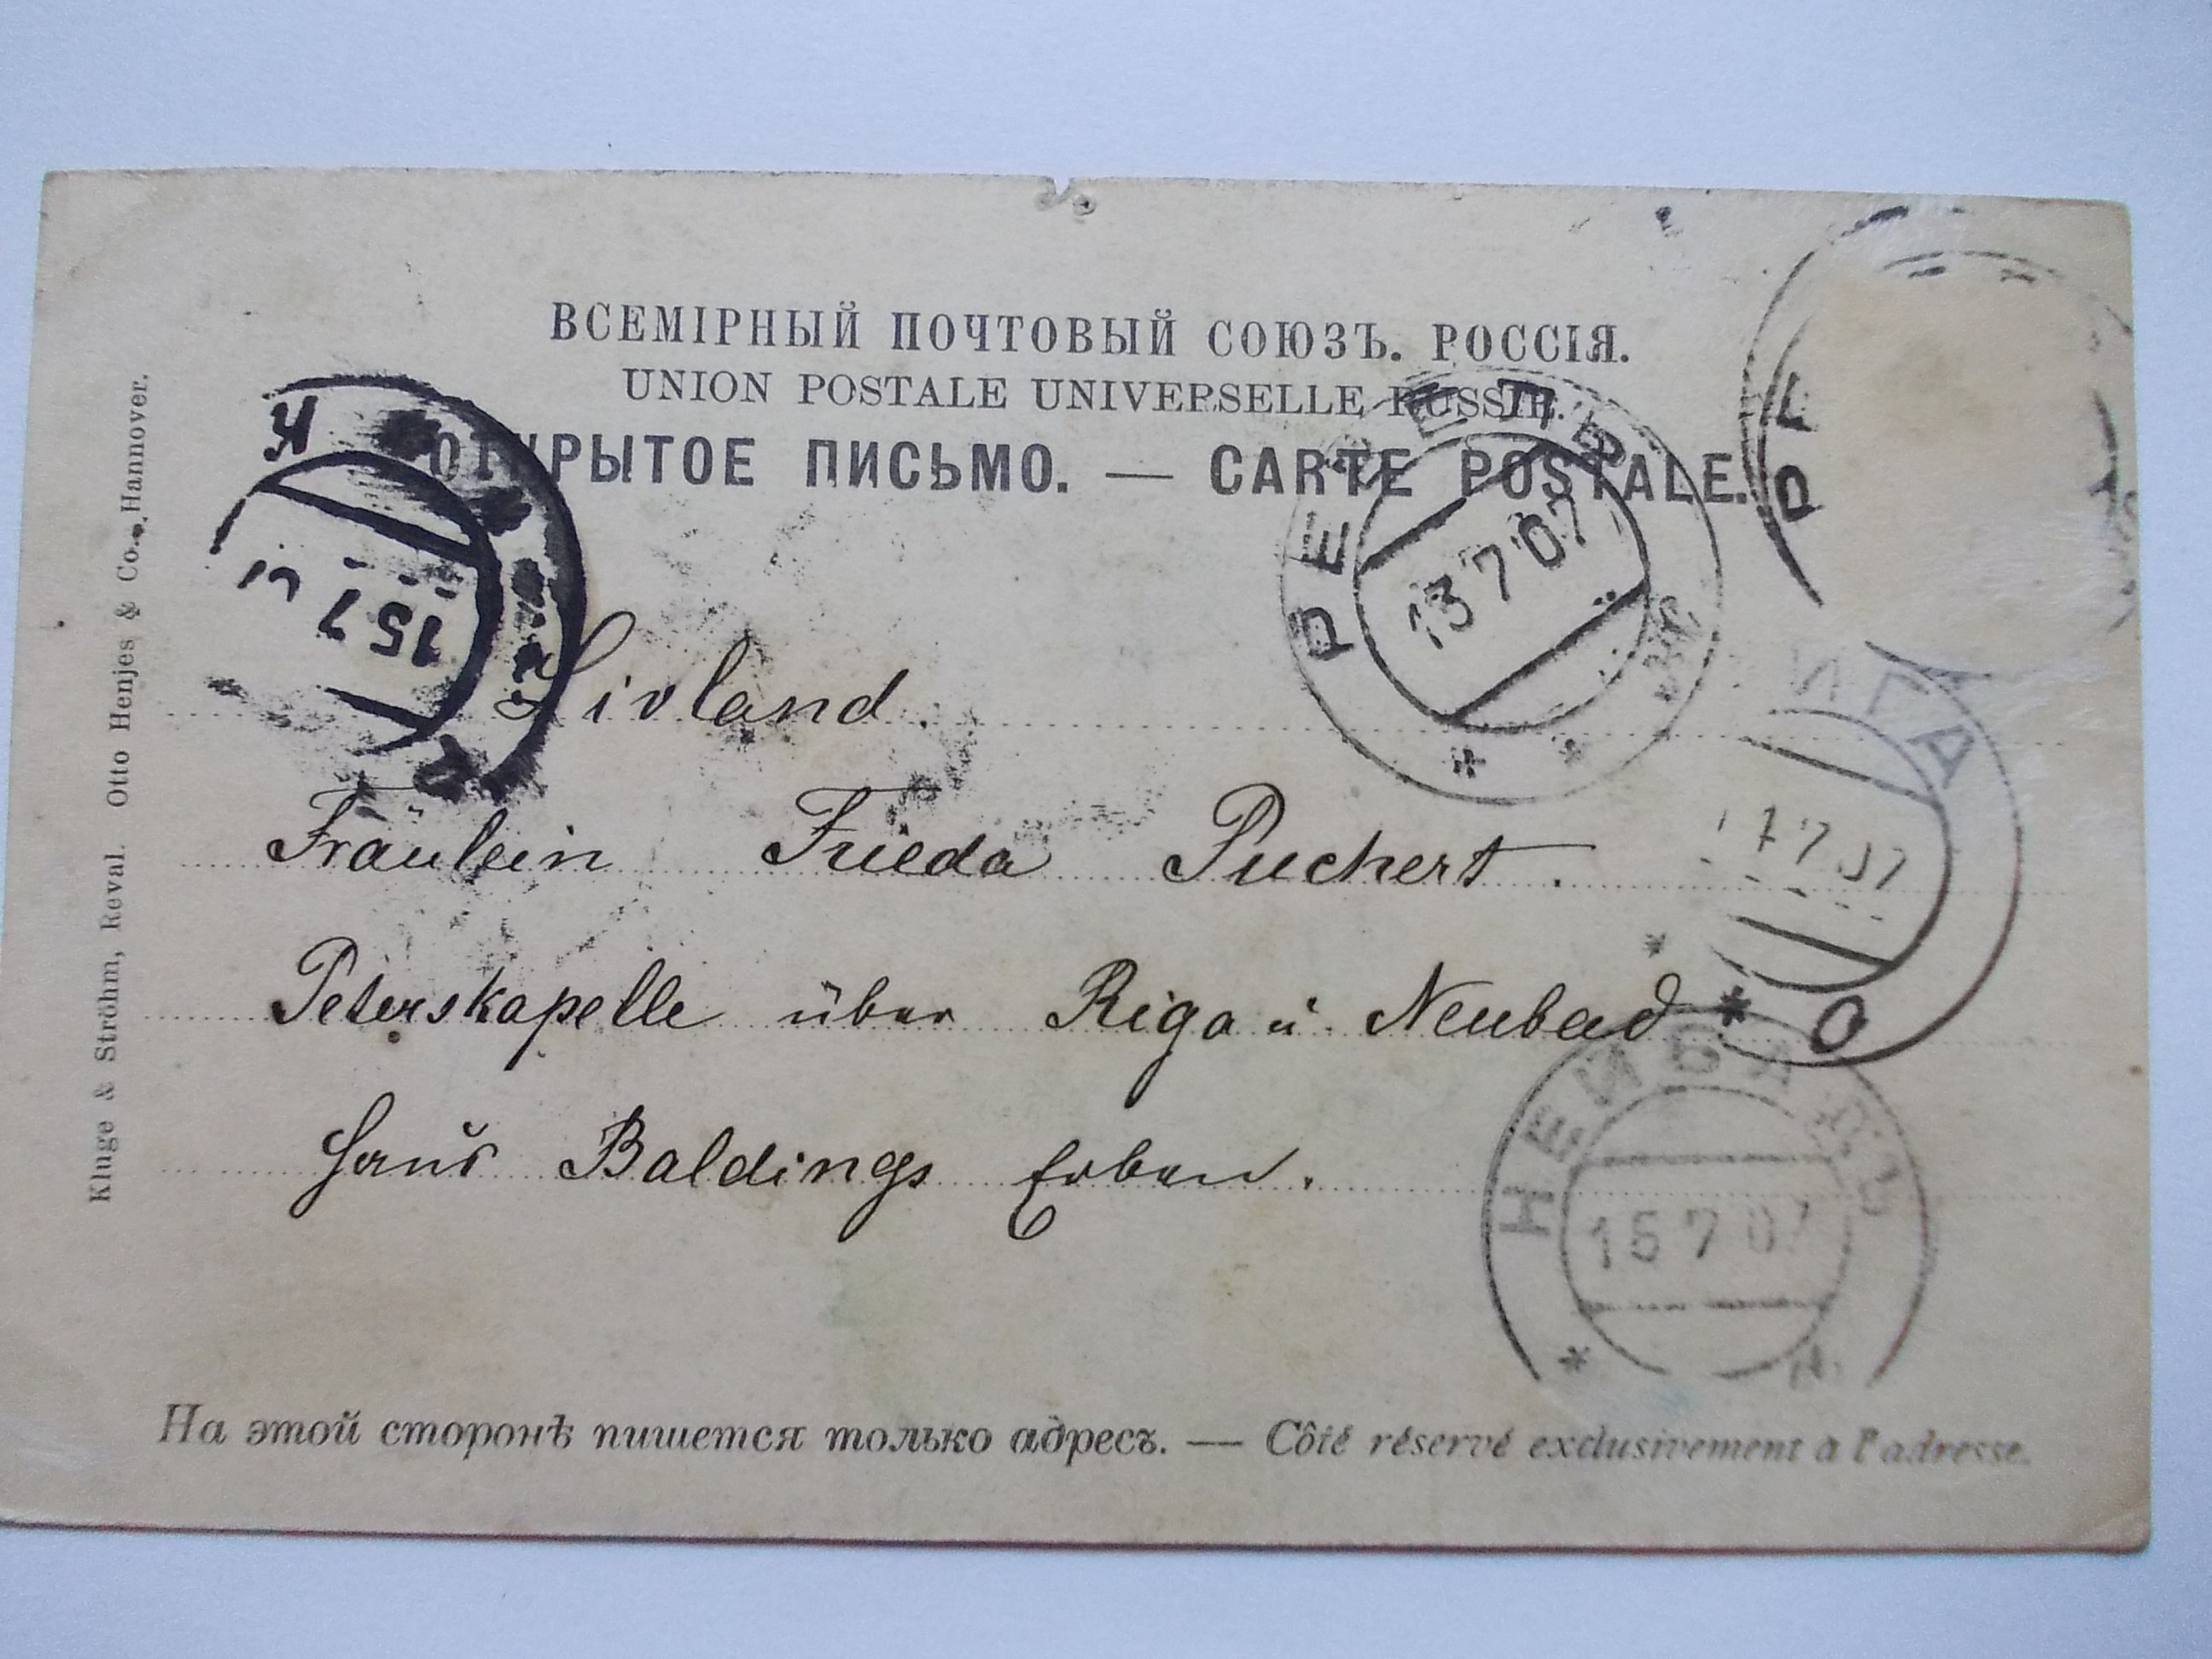 ВСЕМІРНЫЙ ПОЧТОВЫЙ СОЮЗЪ. РОССІЯ.
UNION POSTALE UNIVERSELLE RUSSIE.
ОТКРЫТОЕ ПИСЬМО. — CARTE POSTALE.
РЕВЕЛЬ
13 7 07
15 7
Livland.
ИГА
7 7 07
Fräulein Frieda Puchert.
Peterskapelle über Riga u. Neubad
Haus Baldings Erben.
НЕЙБАДЪ
15 7 07
На этой сторонѣ пишется только адресъ. — Côté réservé exclusivement à l'adresse.
Kluge & Ströhm, Reval. Otto Henjes & Co., Hannover.